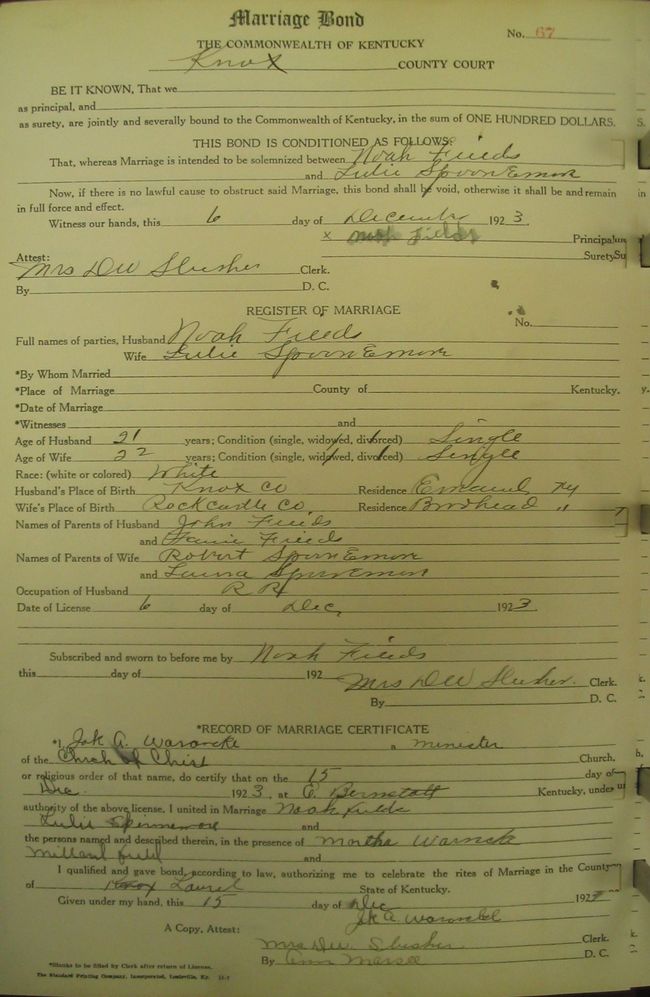 Marriage Bond
No. 67
THE COMMONWEALTH OF KENTUCKY
Knox COUNTY COURT
BE IT KNOWN, That we
as principal, and
as surety, are jointly and severally bound to the Commonwealth of Kentucky, in the sum of ONE HUNDRED DOLLARS.
THIS BOND IS CONDITIONED AS FOLLOWS:
That, whereas Marriage is intended to be solemnized between Noah Fields
and Lulie Spoon Emore
Now, if there is no lawful cause to obstruct said Marriage, this bond shall be void, otherwise it shall be and remain
in full force and effect.
Witness our hands, this 6 day of December 1923.
x Noah Fields Principal
Attest: Surety
Mrs DW Slusher Clerk.
By D. C.
REGISTER OF MARRIAGE
No.
Full names of parties, Husband Noah Fields
Wife Lulie Spoon Emore
*By Whom Married
*Place of Marriage County of Kentucky.
*Date of Marriage
*Witnesses and
Age of Husband 21 years; Condition (single, widowed, divorced) Single
Age of Wife 22 years; Condition (single, widowed, divorced) Single
Race: (white or colored) White
Husband's Place of Birth Knox Co Residence Emanuel Ky
Wife's Place of Birth Rockcastle Co. Residence Brodhead "
Names of Parents of Husband John Fields
and Fields
Names of Parents of Wife Robert Spoon Emore
and Laura Spoonemore
Occupation of Husband R R
Date of License 6 day of Dec, 1923.
Subscribed and sworn to before me by Noah Fields
this day of 192
Mrs DW Slusher. Clerk.
By D. C.
*RECORD OF MARRIAGE CERTIFICATE
*I, A. a Minester
of the Church of Christ Church.
or religious order of that name, do certify that on the 15 day of
Dec. 1923, at E. Bernstatt Kentucky, under
authority of the above license, I united in Marriage Noah Fields
Lulie and
the persons named and described therein, in the presence of Martha
and
I qualified and gave bond, according to law, authorizing me to celebrate the rites of Marriage in the County
of Knox Laurel State of Kentucky.
Given under my hand, this 15 day of Dec 192
A.
A Copy, Attest:
Mrs DW. Slusher Clerk.
By Marsee D. C.
*Blanks to be filled by Clerk after return of License.
The Standard Printing Company, Incorporated, Louisville, Ky.